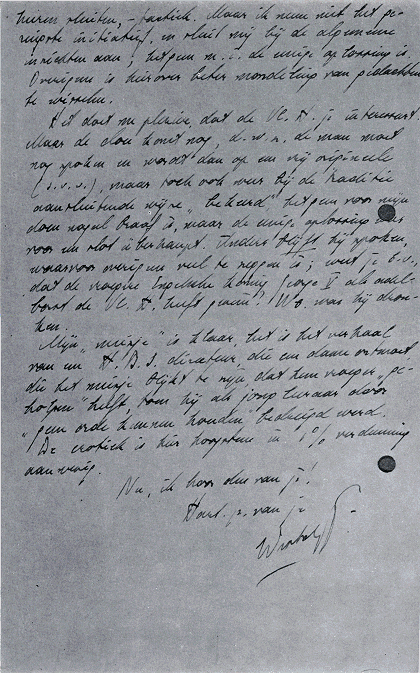 sluiten, – practisch. Maar ik neem niet het ge-
ringste initiatief, en sluit mij bij de algemeene
inzichten aan; hetgeen m.i. de eenige oplossing is.
Overigens is hierover beter mondeling van gedachten
te wisselen.
Het doet me plezier, dat de Vl. H. je interesseert.
Maar de clou komt nog, d.w.z. de man moet
nog spoken en wordt dan op een vrij origineele
(s.v.v.), maar toch ook weer bij de traditie
aansluitende wijze "bekeerd" hetgeen voor mijn
doen nogal braaf is, maar de eenige oplossing
voor een slot überhaupt. Anders blijft hij spoken,
waarvoor overigens veel te zeggen is; weet je b.v.,
dat de vroegere Engelsche koning George V als adel-
borst de Vl. H. heeft gezien? Wo. was hij dron-
ken.
Mijn "meisje" is klaar, het is het verhaal
van een H.B.S. directeur die een dame ontmoet
die het meisje blijkt te zijn, dat hem vroeger "ge-
holpen" heeft, toen hij als jong leraar door
"geen orde kunnen houden" bedreigd werd.
De erotiek is hier hoogstens in 1% verdunning
aanwezig.
Nu, ik hoor dus van je!
Hart. gr. van je